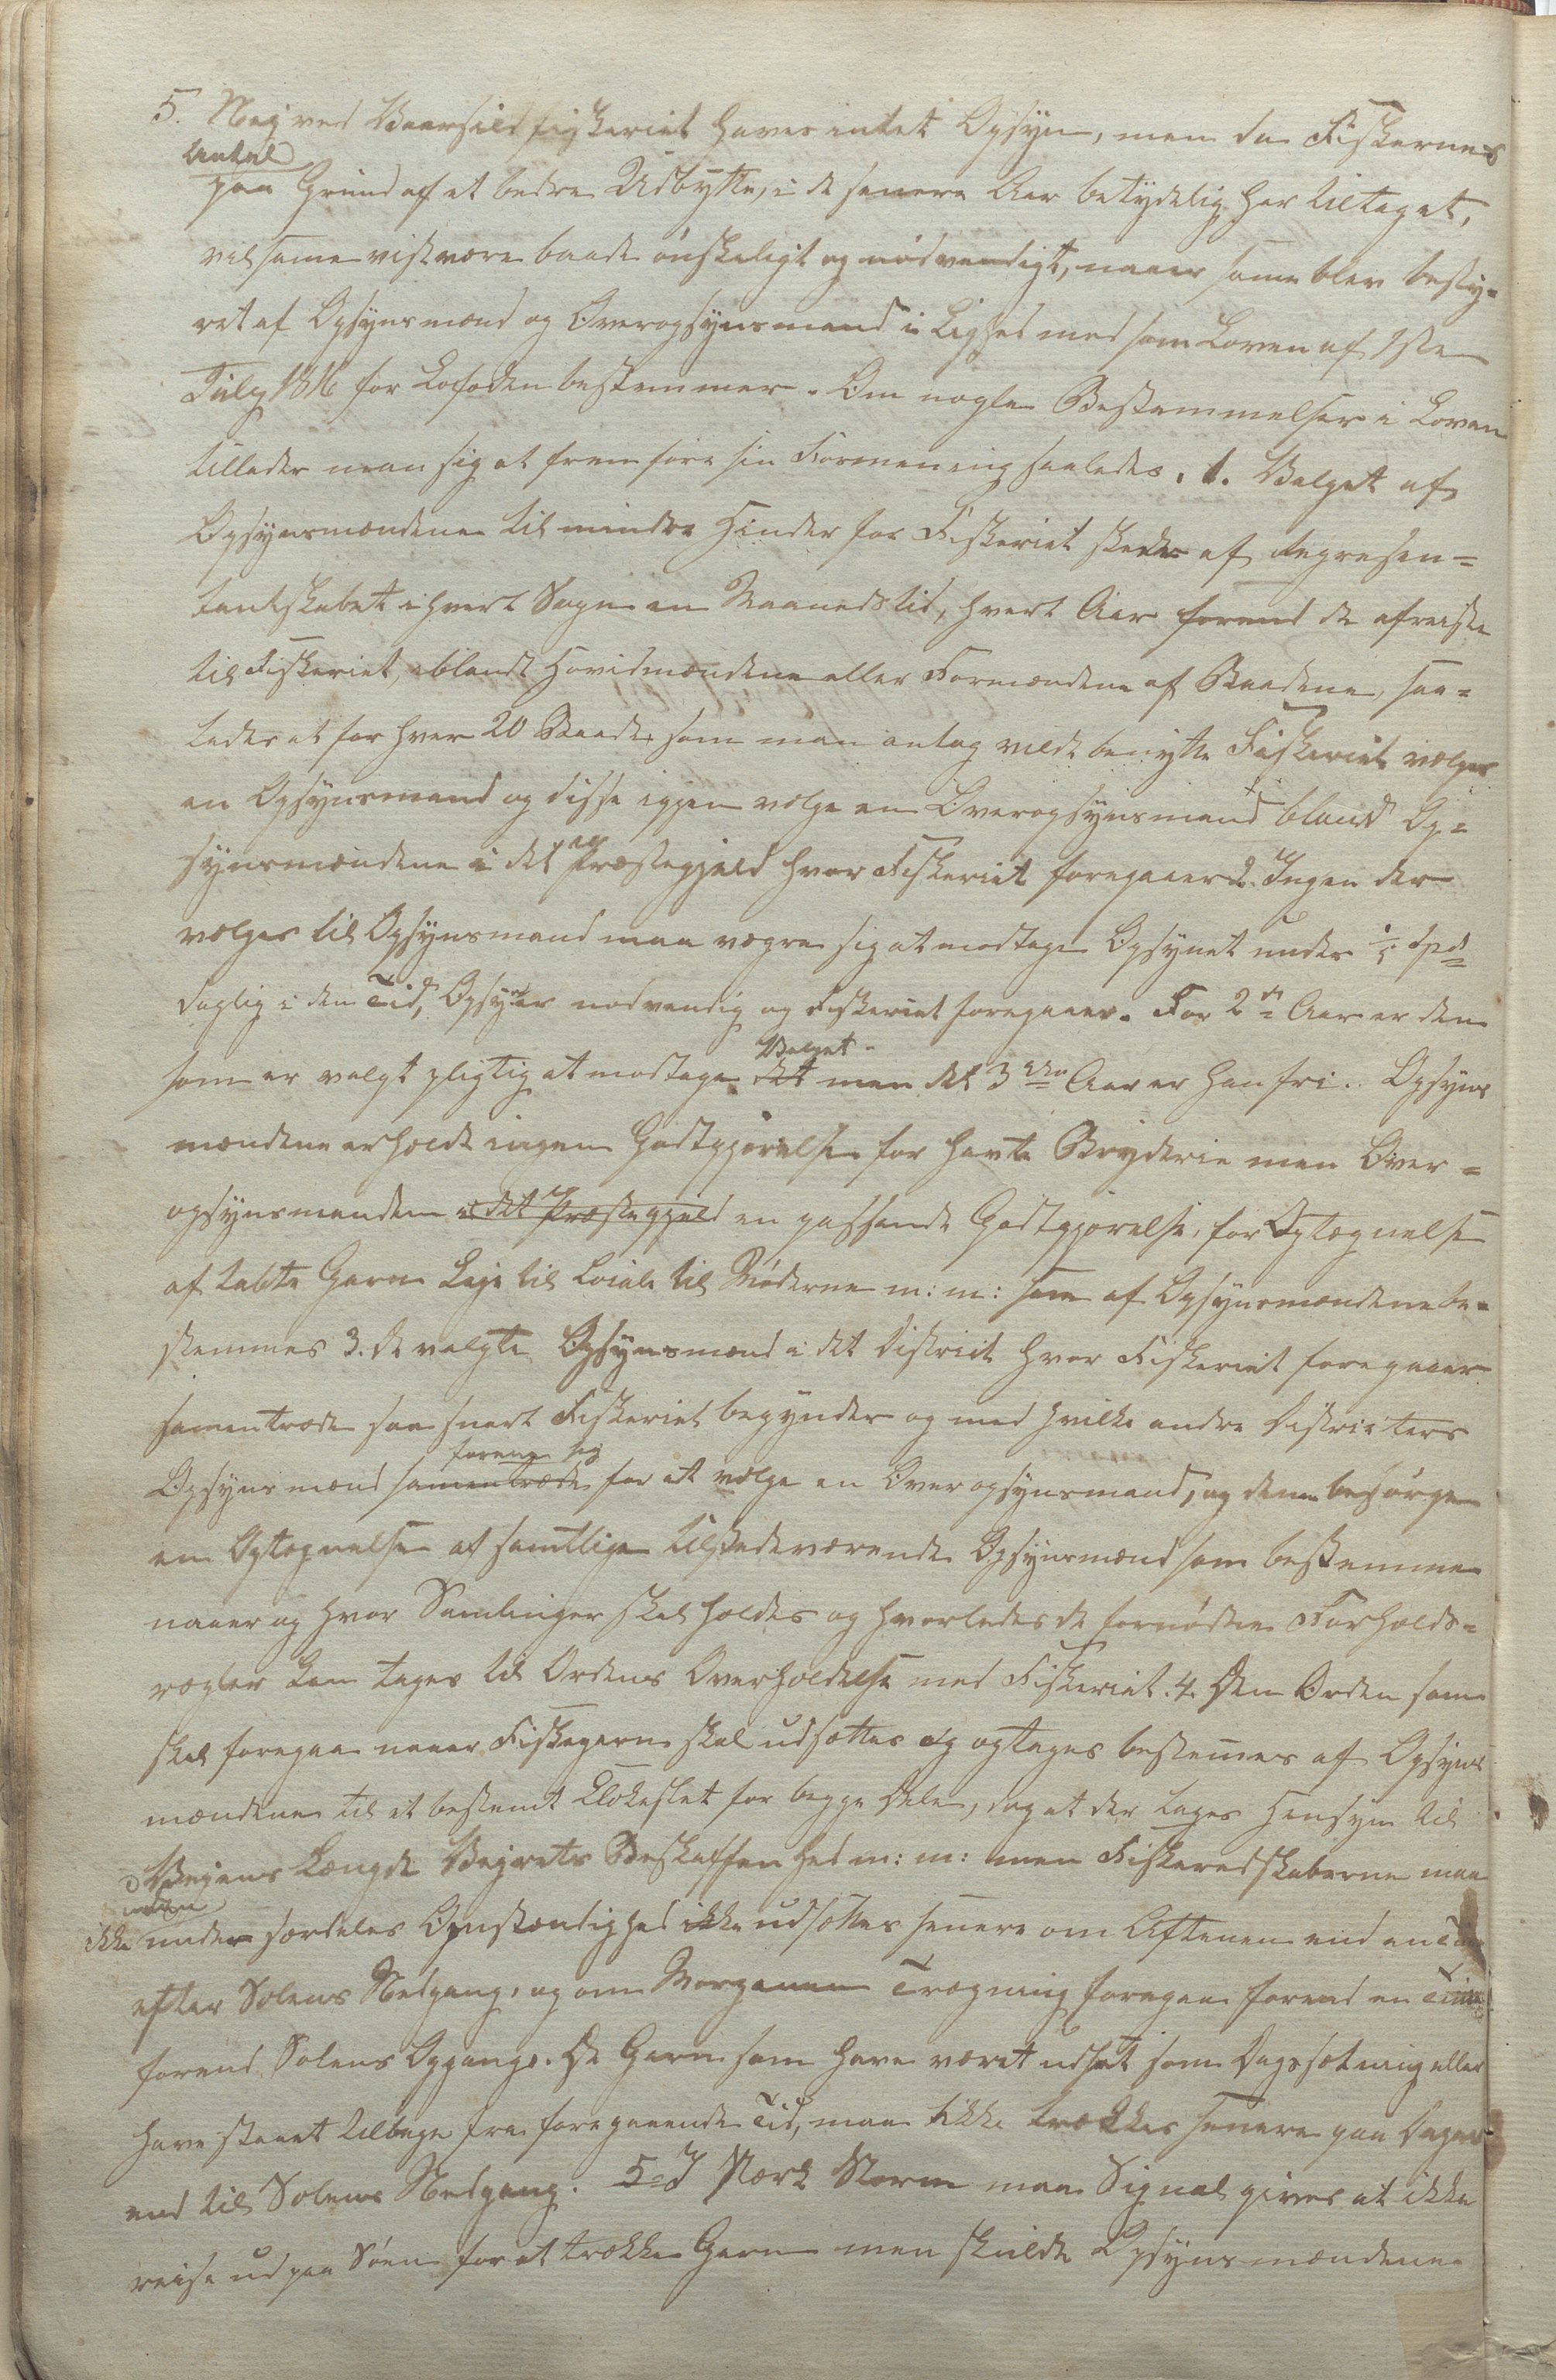 5. Nej ved Vaarsildfiskeriet haves intet Opsyn, men da Fiskernes
Antal
paa Grund af et bedre Udbytte, i de senere Aar betydelig har tiltaget,
vil same vist være baade ønskeligt og nødvendigt, naaer same blev besty=
ret af Opsynsmænd og Overopsynsmænd i Lighed med som Loven af 1ste
July 1816 for Lofoden bestemmer. Om nogle Bestemmelser i Loven
tillader man sig at fremføre sin Formening saaledes. 1. Valget af
Opsynsmændene til mindre Hinder for Fiskeriet skede af Represen=
tantskabet i hvert Sogn en Maanedstid, hvert Aar forend de afreiste
til Fiskeriet, iblandt Høvidmændene eller Formændene af Baadene, saa=
ledes at for hver 20 Baade som man antog vilde benytte Fiskeriet vælges
en Opsynsmand og disse igjen vælge en Overopsynsmand blandt Op=
synsmændene i det Præstegjeld hvor Fiskeriet foregaaer 2. Ingen der
vælges til Opsynsmand maa vægre sig at modtage Opsynet under Spd
daglig i den Tid, Opsyn er nødvendig og Fiskeriet foregaaer. For 2de Aar er den
Valget
som er valgt pligtig at modtage det men det 3die Aar er han fri. Opsyns
mændene erholdt ingen Godtgjørelse for havte Bryderie men Over=
opsynsmanden i det Præstegjeld en passende Godtgjørelse, for Optegnelse
af tabte Garn Leje til Locale til Møderne m: m: som af Opsynsmændene be=
stemmes 3. De valgte Opsynsmænd i det District hvor Fiskeriet foregaaer
samentræde saa snart Fiskeriet begynder og med hvilke andre Districters
forene sig
Opsynsmænd samentræde for at vælge en Overopsynsmand, og denne besørge
en Optegnelse af samtlige tilstedeværende Opsynsmænd som bestemme
naaer og hvor Samlinger skal holdes og hvorledes de fornødne Forholds=
regler kan tages til Ordens Overholdelse med Fiskeriet. 4. Den Orden som
skal foregaa naaer Fiskegarn skal udsættes og optages bestemes af Opsyns
mændene til et bestemt Klokeslet for begge Dele, dog at der tages Hensyn til
Vejens Længde Vejrets Beskaffenhed m: m: men Fiskeredskaberne maa
uden
ikke under særdeles Omstændighed ikke udsættes senere om Aftenen end en Time
efter Solens Nedgang, og om Morgenen Trægning foregaa forend en Time
forend Solens Opgang. De Garn som have været udsat som Dagssætning eller
have staaet tilbage fra foregaaende Tid, maa ikke trækkes senere paa Dagen
end til Solens Nedgang. 5. I stærk Storm maa Signal gives at ikke
reise ud paa Søen for at trække Garn men skulde Opsynsmændene